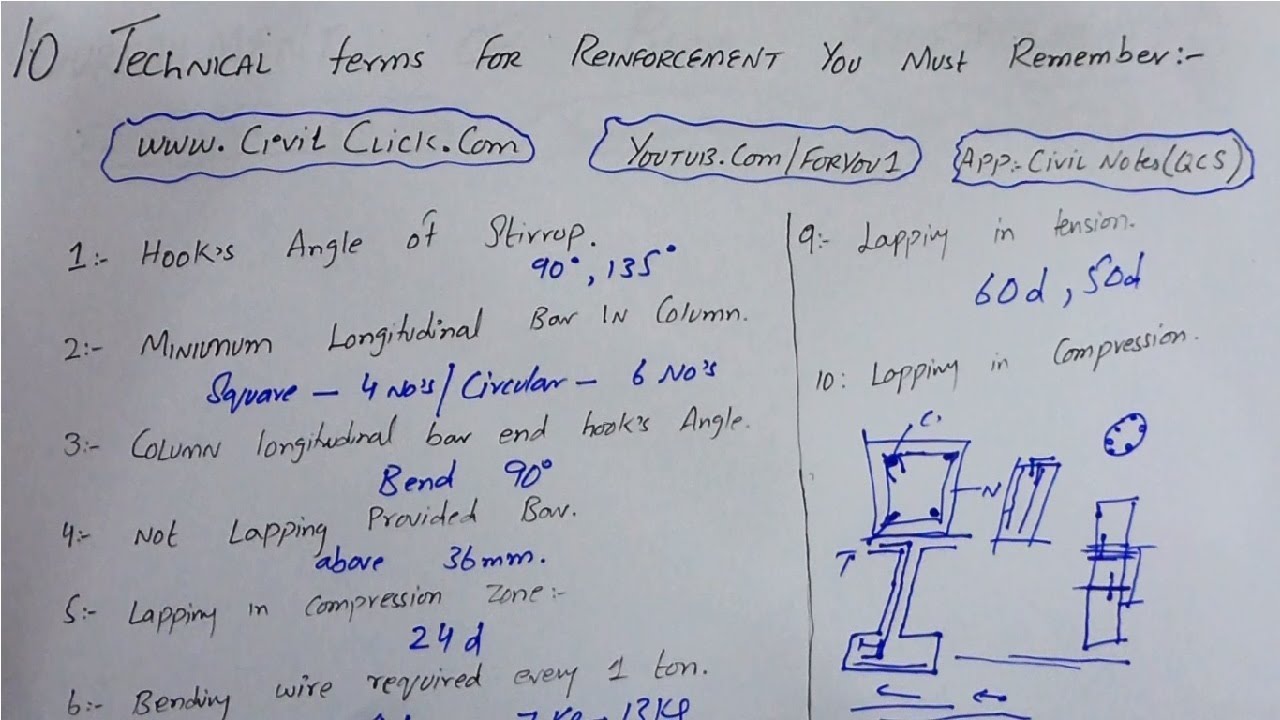 10 Technical terms For Reinforcement You Must Remember:-
www. Civil Click.Com
Youtub.Com/ForYou1
App:- Civil Notes(QCS)
1:- Hook's Angle of Stirrup.
90°, 135°
2:- Miniumum Longitudinal Bar In Column.
Square – 4 No's / Circular – 6 No's
3:- Column longitudinal bar end hook's Angle.
Bend 90°
4:- Not Lapping Provided Bar.
above 36mm.
5:- Lapping in Compression Zone:-
24d
6:- Bending wire required every 1 ton.
9:- Lapping in tension.
60d, 50d
10: Lapping in Compression.
C
N
T